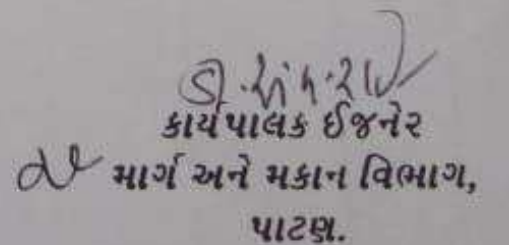 કાર્યપાલક ઈજનેર
માર્ગ અને મકાન વિભાગ,
પાટણ.